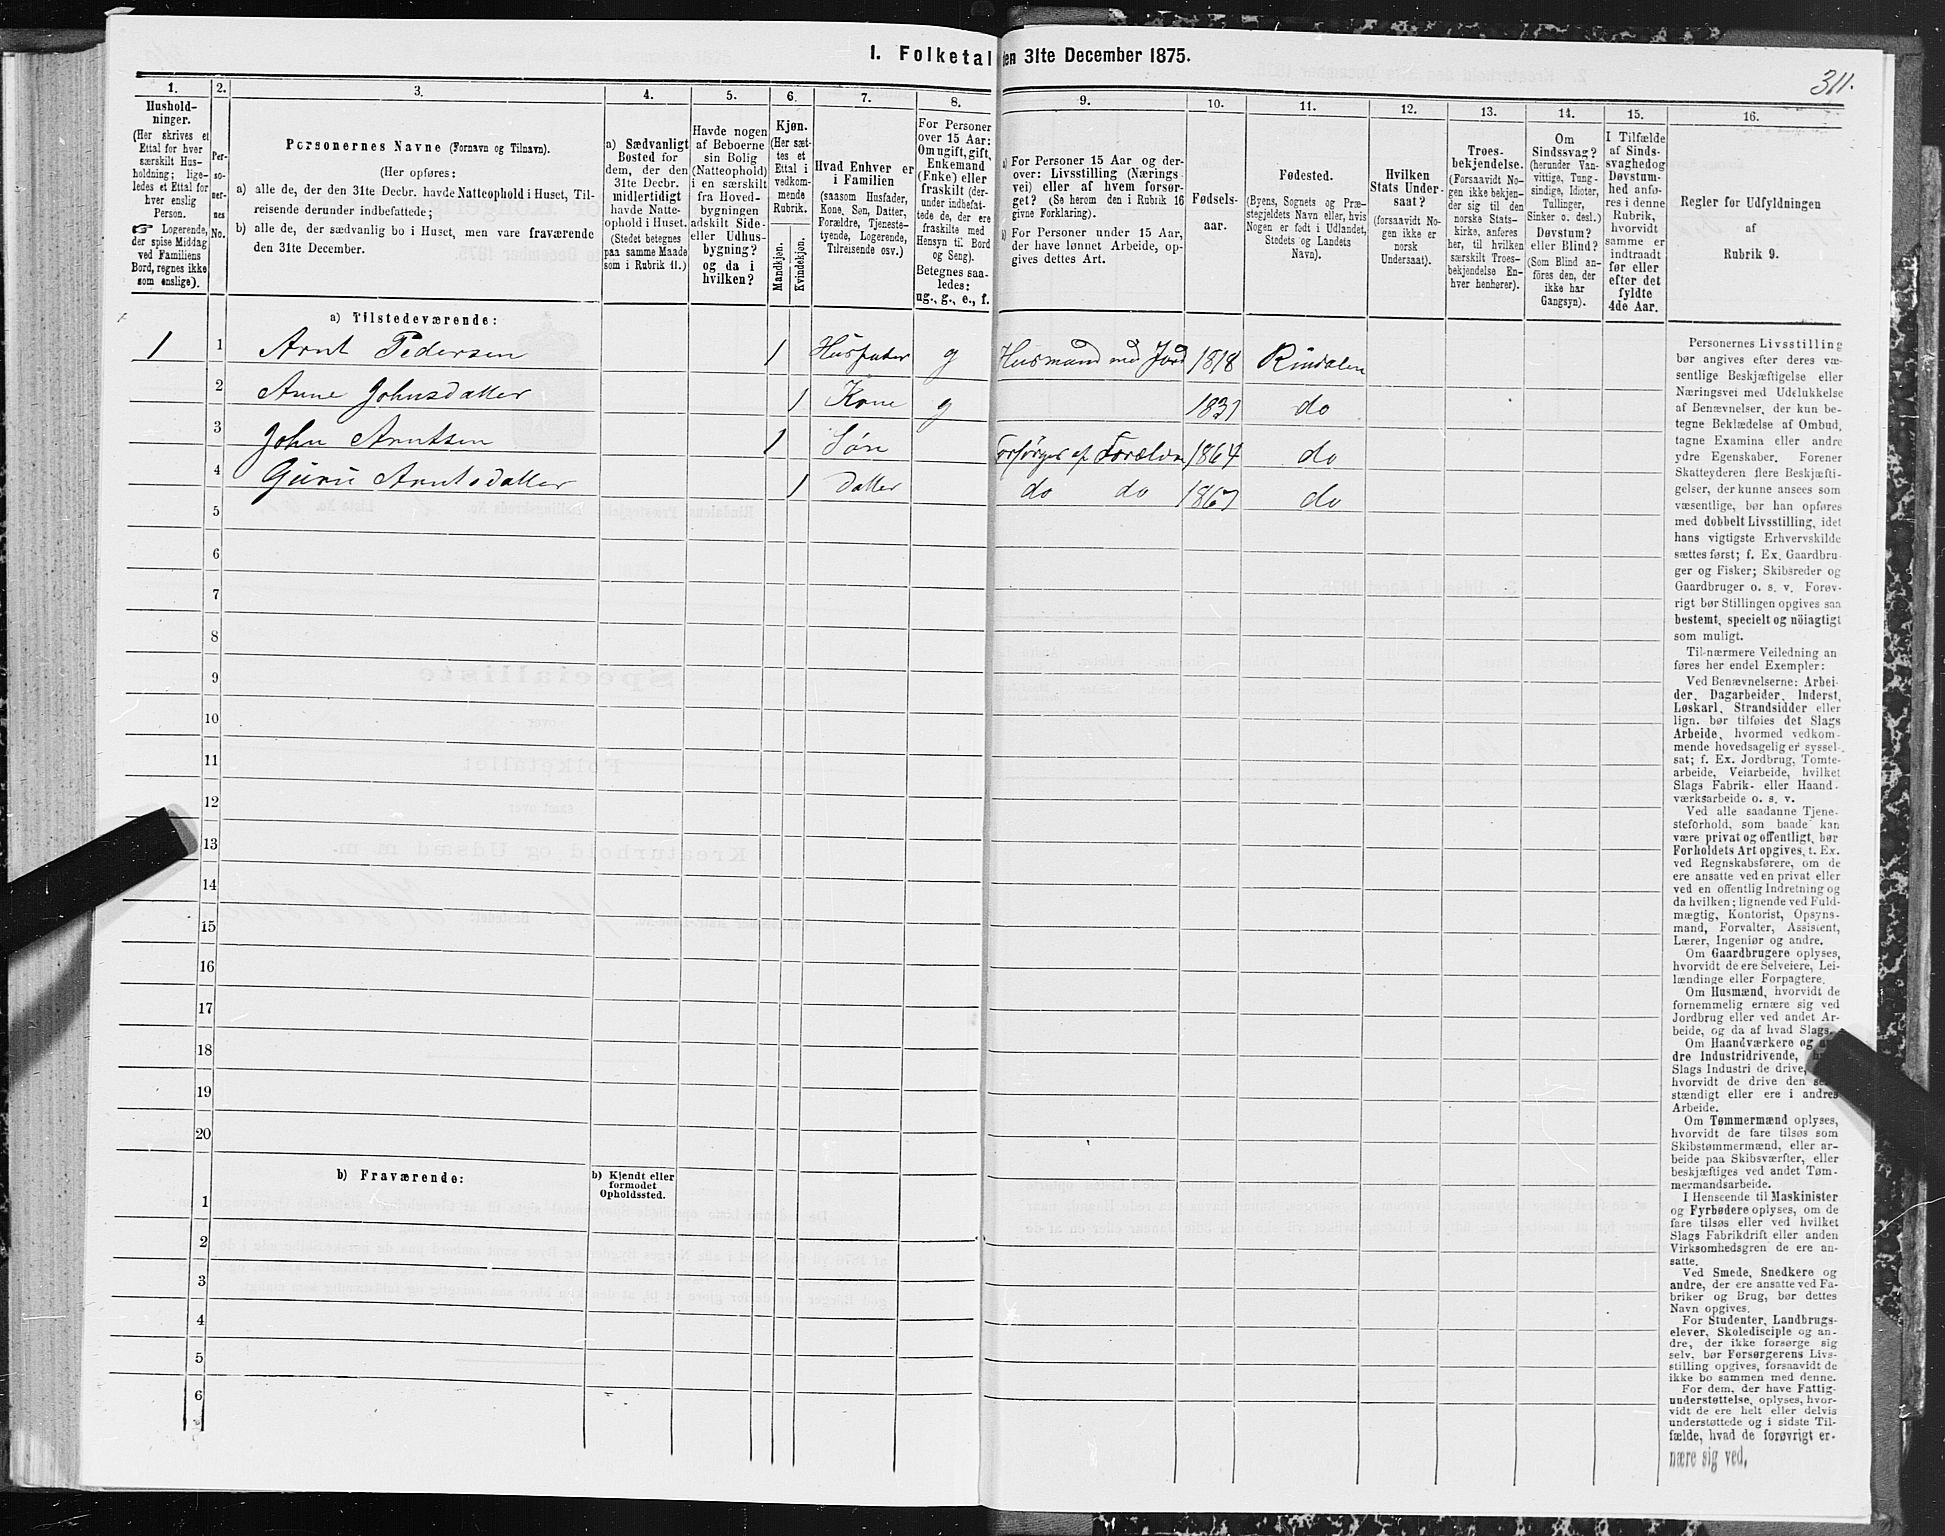 I. Folketal den 31te December 1875.
311.
1.
Hushold-
ninger.
(Her skrives et
Ettal for hver
særskilt Hus-
holdning; lige-
ledes et Ettal for
hver enslig
Person.
☞ Logerende,
der spise Middag
ved Familiens
Bord, regnes ikke
som enslige).
2.
Per-
so-
ner-
nes
No.
3.
Personernes Navne (Fornavn og Tilnavn).
(Her opføres:
a) alle de, der den 31te Decbr. havde Natteophold i Huset, Til-
reisende derunder indbefattede;
b) alle de, der sædvanlig bo i Huset, men vare fraværende
den 31te December.
4.
a) Sædvanligt
Bosted for
dem, der den
31te Decbr.
midlertidigt
havde Natte-
ophold i Huset.
(Stedet betegnes
paa samme Maade
som i Rubrik 11.)
5.
Havde nogen
af Beboerne
sin Bolig
(Natteophold)
i en særskilt
fra Hoved-
bygningen
adskilt Side-
eller Udhus-
bygning?
og da i
hvilken?
6.
Kjøn.
(Her sæt-
tes et
Ettal i
vedkom-
mende
Rubrik.
Mandkjøn.
Kvindekjøn.
7.
Hvad Enhver er
i Familien
(saasom Husfader,
Kone, Søn, Datter,
Forældre, Tjeneste-
tyende, Logerende,
Tilreisende osv.)
8.
For Personer
over 15 Aar:
Om ugift, gift,
Enkemand
(Enke) eller
fraskilt (der-
under indbefat-
tede de, der ere
fraskilte med
Hensyn til Bord
og Seng).
Betegnes saa-
ledes:
ug., g., e., f.
9.
a) For Personer 15 Aar og der-
over: Livsstilling (Nærings-
vei) eller af hvem forsør-
get? (Se herom den i Rubrik 16
givne Forklaring).
b) For Personer under 15 Aar,
der have lønnet Arbeide, op-
gives dettes Art.
10.
Fødsels-
aar.
11.
Fødested.
(Byens, Sognets og Præ-
stegjeldets Navn eller, hvis
Nogen er født i Udlandet,
Stedets og Landets
Navn).
12.
Hvilken
Stats Under-
saat?
(forsaavidt No-
gen ikke er
norsk
Undersaat).
13.
Troes-
bekjendelse.
(Forsaavidt No-
gen ikke bekjen-
der sig til den
norske Stats-
kirke, anføres
her, til hvilken
særskilt Troes-
bekjendelse En-
hver henhører).
14.
Om
Sindssvag?
(herunder Van-
vittige, Tung-
sindige, Idioter,
Tullinger,
Sinker o. desl.)
Døvstum?
eller Blind?
(Som Blind an-
føres den, der
ikke har
Gangsyn).
15.
I Tilfælde
af Sinds-
svaghedog
Døvstum-
hed anfø-
res i denne
Rubrik,
hvorvidt
samme er
indtraadt
før eller
efter det
fyldte
4de Aar.
16.
Regler for Udfyldningen
af
Rubrik 9.
a) Tilstedeværende:
1 1 Arnt Pedersen 1 Husfader g Husmand med Jord 1818 Rindalen
2 Anne Johnsdatter 1 Kone g 1831 do
3 John Arntsen 1 Søn Forsørges af Forældre 1864 do
4 Guru Arntsdatter 1 Datter do do 1867 do
5
6
7
8
9
10
11
12
13
14
15
16
17
18
19
20
b) Fraværende:
b) Kjendt eller
formodet
Opholdssted.
1
2
3
4
5
6
Personernes Livsstilling
bør angives efter deres væ-
sentlige Beskjæftigelse eller
Næringsvei med Udelukkelse
af Benævnelser, der kun be-
tegne Beklædelse af Ombud,
tagne Examina eller andre
ydre Egenskaber. Forener
Skatteyderen flere Beskjæfti-
gelser, der kunne ansees som
væsentlige, bør han opføres
med dobbelt Livsstilling, idet
hans vigtigste Erhvervskilde
sættes først; f. Ex. Gaardbru-
ger og Fisker; Skibsreder og
Gaardbruger o. s. v. Forøv-
rigt bør Stillingen opgives saa
bestemt, specielt og nöiagtigt
som muligt.
Til nærmere Veiledning an
føres her endel Exempler:
Ved Benævnelserne: Arbei-
der, Dagarbeider, Inderst,
Løskarl, Strandsidder eller
lign. bør tilføies det Slags
Arbeide, hvormed vedkom-
mende hovedsagelig er syssel-
sat; f. Ex. Jordbrug, Tomte-
arbeide, Veiarbeide, hvilket
Slags Fabrik- eller Haand-
værksarbeide o. s. v.
Ved alle saadanne Tjene-
steforhold, som baade kan
være privat og offentligt, bør
Forholdets Art opgives, t. Ex.
ved Regnskabsførere, om de
ere ansatte ved en privat eller
ved en offentlig Indretning og
da hvilken; lignende ved Fuld-
mægtig, Kontorist, Opsyns-
mand, Forvalter, Assistent,
Lærer, Ingeniør og andre.
Om Gaardbrugere oplyses,
hvorvidt de ere Selveiere, Lei-
lændinge eller Forpagtere.
Om Husmænd, hvorvidt de
fornemmelig ernære sig ved
Jordbrug eller ved andet Ar-
beide, og da af hvad Slags.
Om Haandværkere og
dre Industridrivende,
Slags Industri de drive,
hvorvidt de drive den
stændigt eller ere i andres
Arbeide.
Om Tømmermænd oplyses,
hvorvidt de fare tilsøs som
Skibstømmermænd, eller ar-
beide paa Skibsværfter, eller
beskjæftiges ved andet Tøm-
mermandsarbeide.
I Henseende til Maskinister
og Fyrbødere oplyses, om de
fare tilsøs eller ved hvilket
Slags Fabrikdrift eller anden
Virksomhedsgren de ere an-
satte.
Ved Smede, Snedkere og
andre, der ere ansatte ved Fa-
briker og Brug, bør dettes
Navn opgives.
For Studenter, Landbrugs-
elever, Skoledisciple og an-
dre, der ikke forsørge sig
selv, bør Forsørgerens Livs-
stilling opgives, forsaavidt de
ikke bo sammen med denne.
For dem, der have Fattig-
understøttelse, oplyses, hvor-
vidt de ere helt eller delvis
understøttede og i sidste Til-
fælde, hvad de forøvrigt er-
nære sig ved.